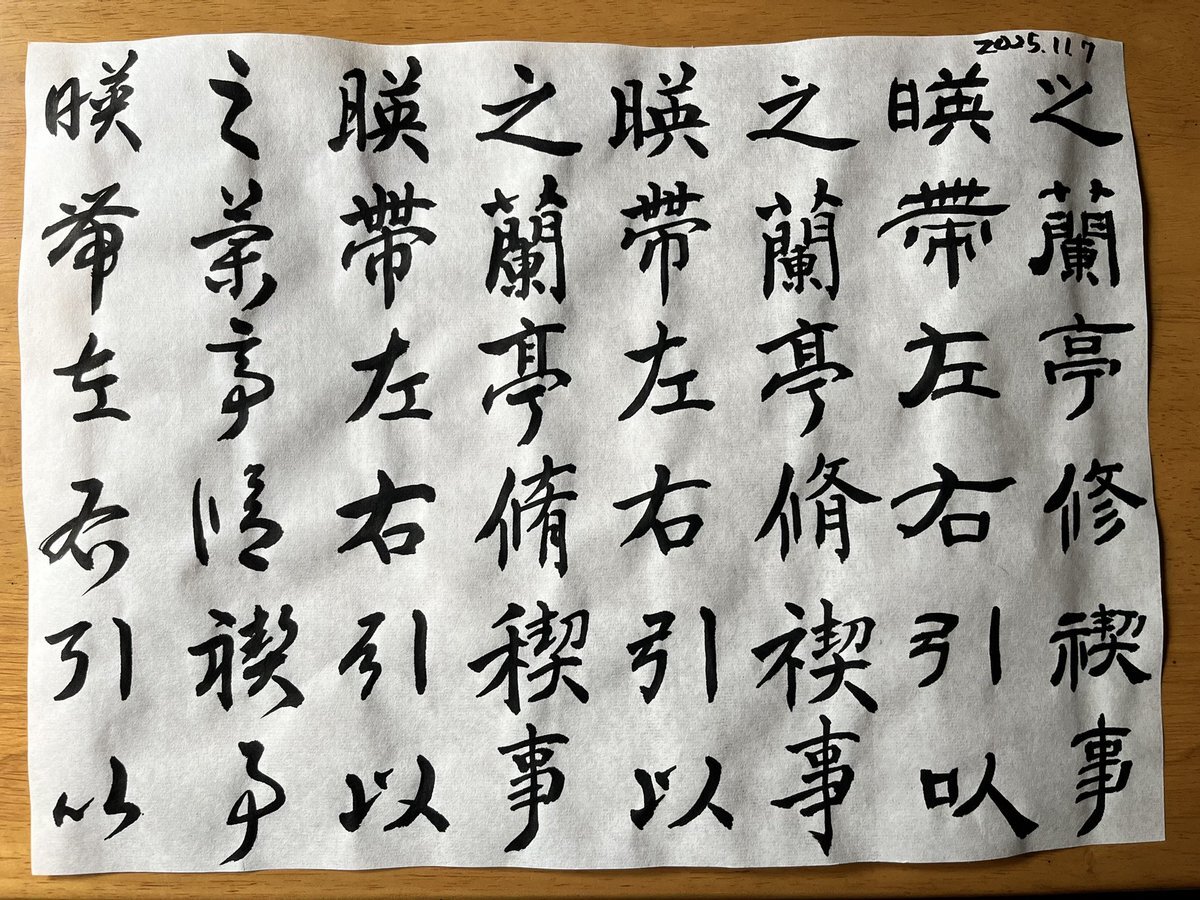 2025.11 7
之蘭亭修禊事
暎帶左右引以
之蘭亭脩禊事
暎帶左右引以
之蘭亭脩稧事
暎帶左右引以
之蘭亭脩禊事
暎帶左右引以